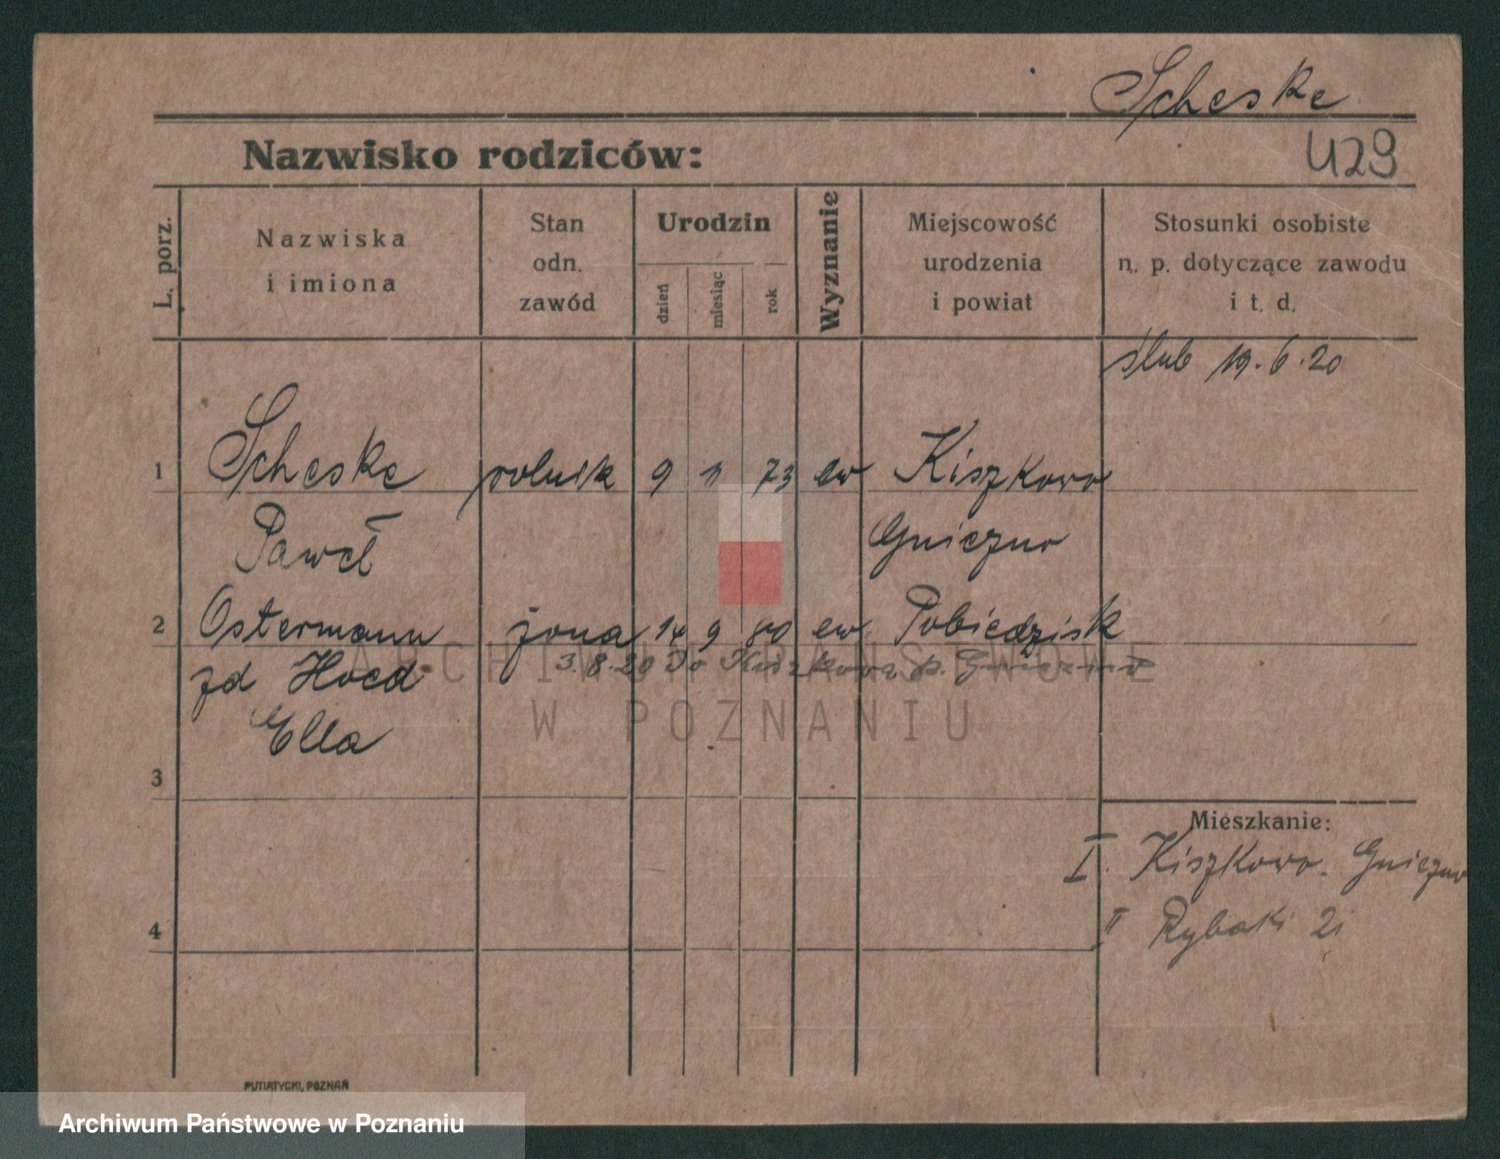 Scheske
Nazwisko rodziców:
429
L. porz.
Nazwiska
i imiona
Stan
odn.
zawód
Urodzin
dzień
miesiąc
rok
Wyznanie
Miejscowość
urodzenia
i powiat
Stosunki osobiste
n. p. dotyczące zawodu
i t. d.
ślub 19.6.20
1 Scheske rolnik 9 11 73 ew Kiszkowo
Paweł Gniezno
2 Ostermann żona 14 9 80 ew Pobiedzisk
zd Hoed
3.8.20 Do Kiszkowa p. Gniezno
Ella
3
Mieszkanie:
I. Kiszkowo. Gniezno
4
II Rybaki 21
ARCHIWUM PAŃSTWOWE
W POZNANIU
PUTIATYCKI, POZNAŃ
Archiwum Państwowe w Poznaniu